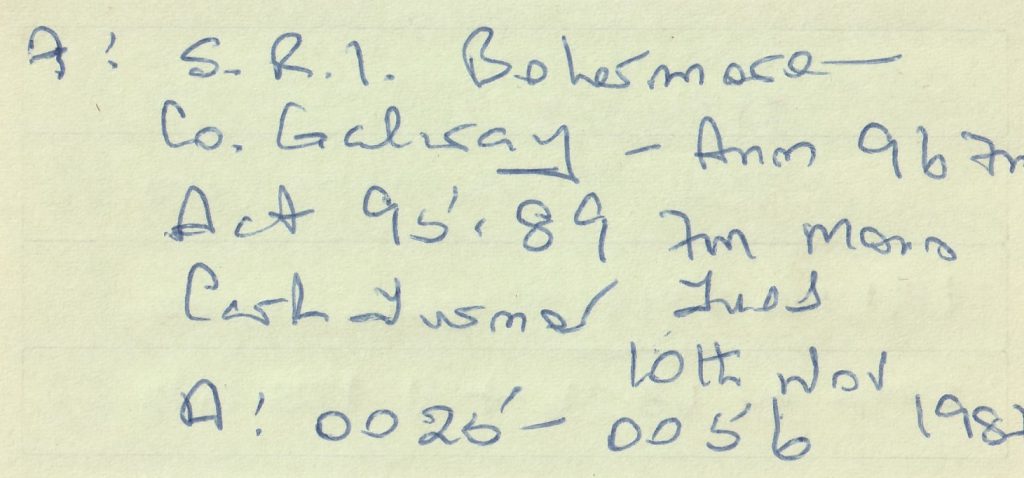 A: S.R.I. Bohermore—
Co. Galway - Ann 96 Fm
Act 95.89 Fm mono
Cash Turner Tues
10th Nov
A: 0025 - 0056 198